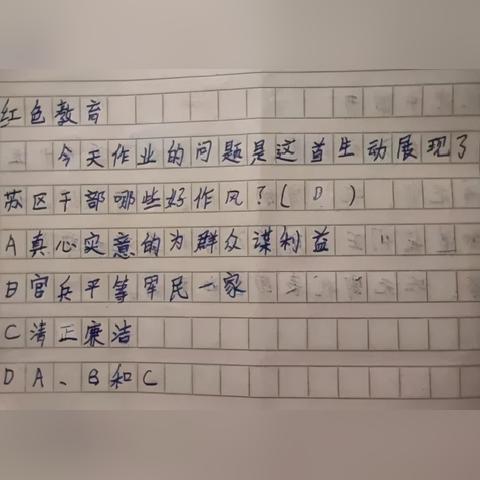 红色教育
今天作业的问题是这首生动展现了
苏区干部哪些好作风?(D)
A真心实意的为群众谋利益
B官兵平等军民一家
C清正廉洁
D A、B和C